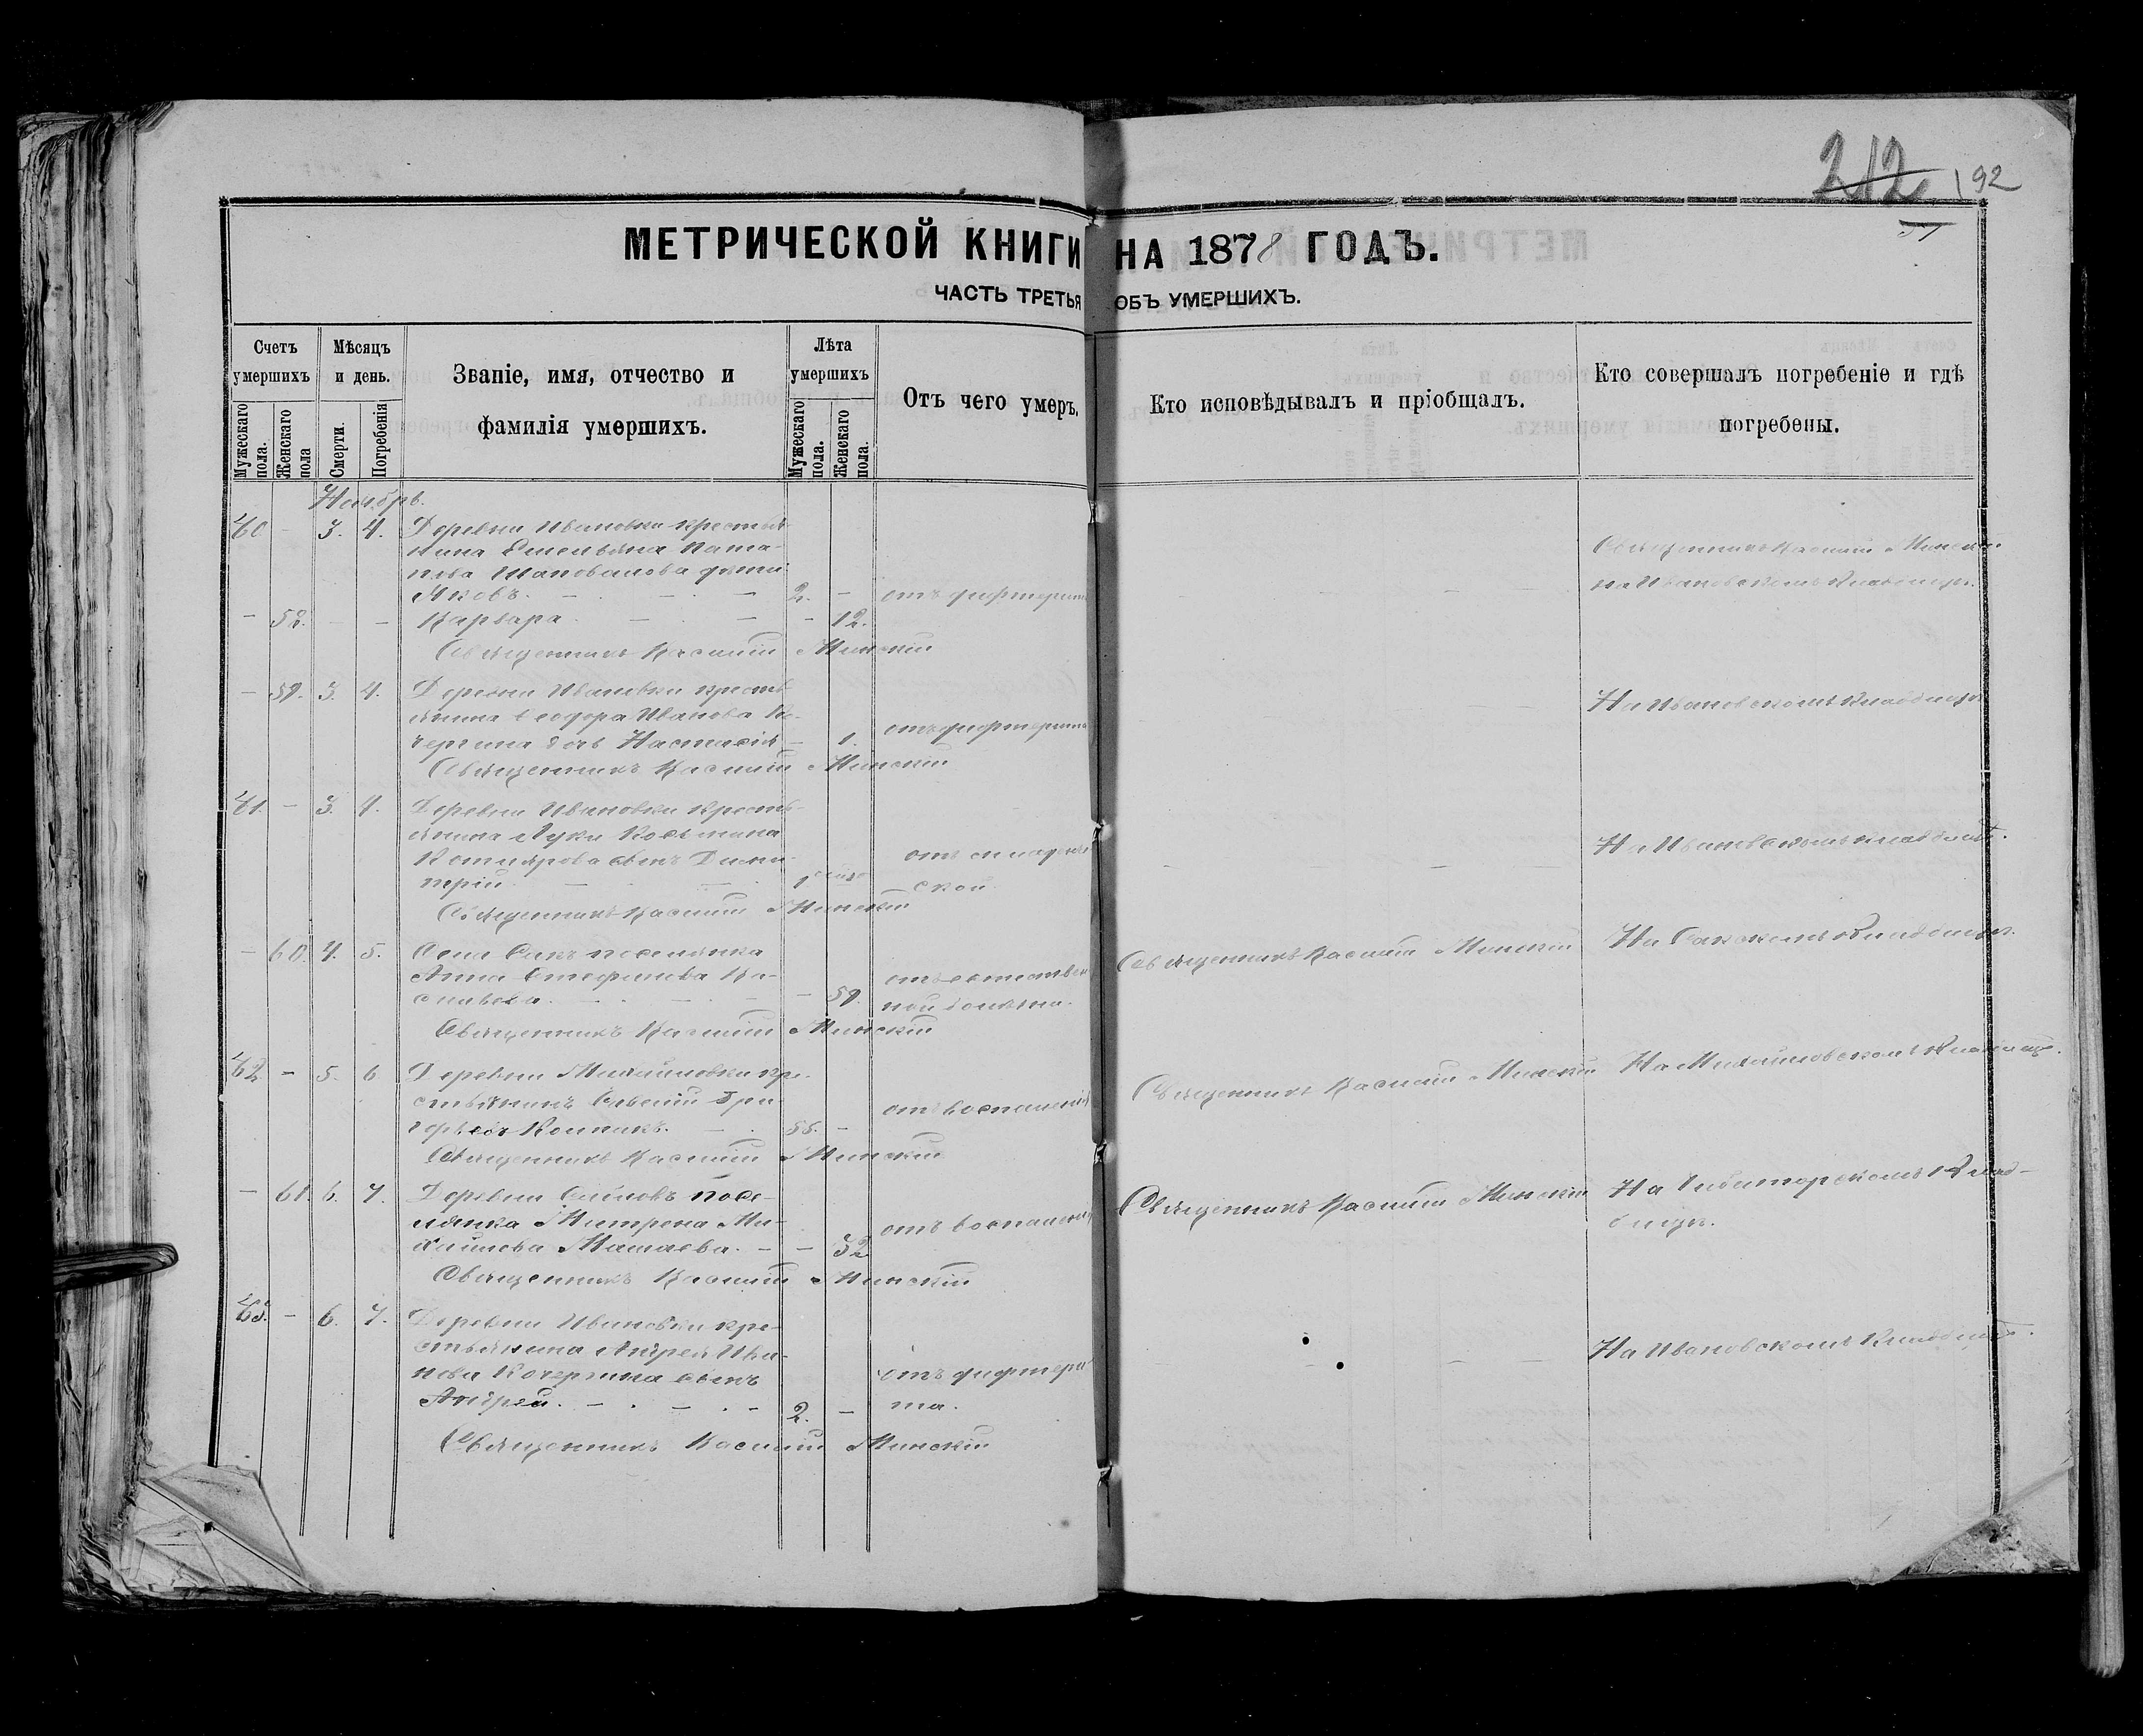 212 192
МЕТРИЧЕСКОЙ КНИГИ НА 1878 ГОДЪ.
ЧАСТЬ ТРЕТЬЯ ОБЪ УМЕРШИХЪ.
Счетъ умершихъ
Мужескаго пола.
Женскаго пола
Мѣсяцъ и день.
Смерти.
Погребенія
Званіе, имя, отчество и
фамилія умершихъ.
Лѣта умершихъ
Мужескаго пола.
Женскаго пола.
Отъ чего умеръ.
Кто исповѣдывалъ и пріобщалъ.
Кто совершалъ погребеніе и гдѣ
погребены.
Ноябрь.
60 - 3. 4. Деревни Ивановки крестья
нина Емельяна
Шаповалова дѣти
Священникъ Василій Минскій
Яковъ. 2. - отъ дифтерита
на Ивановскомъ кладбищѣ.
- 58. - - Варвара. - 12.
Священникъ Василій Минскій
- 59. 3. 4. Деревни Ивановки кресть
янина Ѳеодора Иванова Ко-
чергина дочь Настасія - 1. отъ дифтерита
На Ивановскомъ кладбищѣ
Священникъ Василій Минскій
61. - 3. 4. Деревни Ивановки кресть-
янина Луки Косьмина
Котлярова сынъ Дими-
трій 1 отъ младенче
ской.
На Ивановскомъ кладбищѣ.
Священникъ Василій Минскій
- 60. 4. 5. Села Сакъ поселянка
Анна Стефанова Ва-
сильева. - 59. отъ естествен
ной болѣзни.
Священникъ Василій Минскій
На Сакскомъ кладбищѣ.
Священникъ Василій Минскій
62 - 5. 6 Деревни Михайловки кре-
стьянинъ Савелій Гри
горьевъ 55. - отъ воспаленія
Священникъ Василій Минскій
На Михайловскомъ кладбищѣ.
Священникъ Василій Минскій
- 61. 6. 7. Деревни посе-
лянка Митрена Ми-
хайлова - 32 отъ воспаленія
Священникъ Василій Минскій
На кладбищѣ.
Священникъ Василій Минскій
63. - 6. 7. Деревни Ивановки кре-
стьянина Андрея Ива-
нова Кочергина сынъ
Андрей. 2. - отъ дифтери
та.
На Ивановскомъ кладбищѣ.
Священникъ Василій Минскій